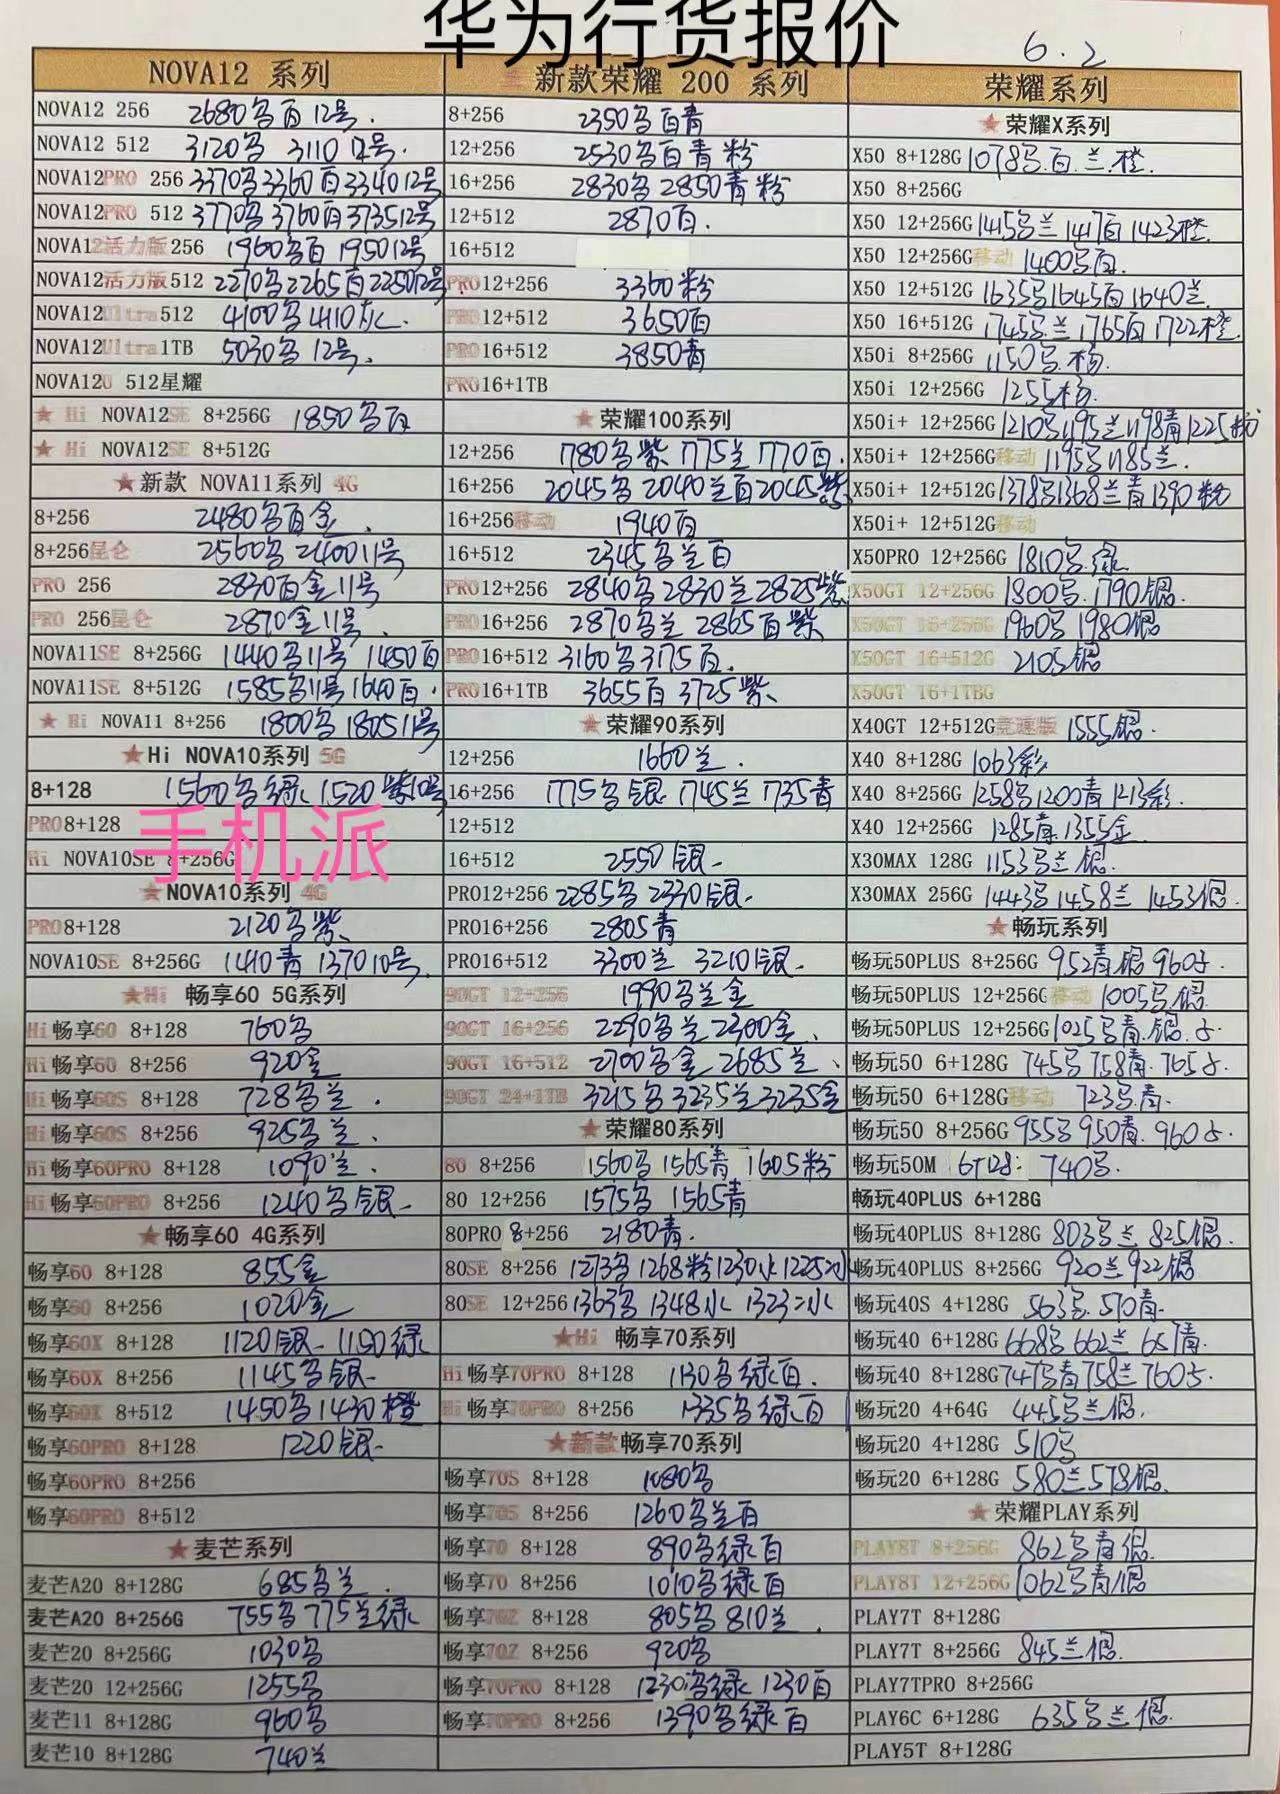 华为行货报价
6.2
NOVA12 系列
NOVA12 256 2680乌百12号.
NOVA12 512 3120乌 3110 12号.
NOVA12PRO 256 3370乌3360百3340 12号
NOVA12PRO 512 3770乌3760百3735 12号
NOVA12活力版256 1960乌百 1950 12号
NOVA12活力版512 2270乌2265百2250 12号.
NOVA12Ultra512 4100乌4110灰.
NOVA12Ultra1TB 5030乌12号.
NOVA12U 512星耀
★ Hi NOVA12SE 8+256G 1850乌百
★ Hi NOVA12SE 8+512G
★新款 NOVA11系列 4G
8+256 2480乌百金.
8+256昆仑 2560乌2400 11号
PRO 256 2830百金11号
PRO 256昆仑 2870金11号.
NOVA11SE 8+256G 1440乌11号 1450百
NOVA11SE 8+512G 1585乌11号1640百.
★ Hi NOVA11 8+256 1800乌1805 11号
★Hi NOVA10系列 5G
8+128 1560乌绿1520紫10号
PRO8+128
手机派
Hi NOVA10SE 8+256G
★NOVA10系列 4G
PRO8+128 2120乌紫
NOVA10SE 8+256G 1410青1370 10号.
★Hi 畅享60 5G系列
Hi畅享60 8+128 760乌
Hi畅享60 8+256 920金
Hi畅享60S 8+128 728乌兰.
Hi畅享60S 8+256 925乌兰.
Hi畅享60PRO 8+128 1090兰.
Hi畅享60PRO 8+256 1240乌银.
★畅享60 4G系列
畅享60 8+128 855金
畅享60 8+256 1020金
畅享60X 8+128 1120银 1150绿
畅享60X 8+256 1145乌银
畅享60X 8+512 1450乌1430橙
畅享60PRO 8+128 1220银
畅享60PRO 8+256
畅享60PRO 8+512
★麦芒系列
麦芒A20 8+128G 685乌兰.
麦芒A20 8+256G 755乌775兰绿
麦芒20 8+256G 1030乌
麦芒20 12+256G 1255乌
麦芒11 8+128G 960乌
麦芒10 8+128G 740兰
新款荣耀 200 系列
8+256 2350乌百青
12+256 2530乌百青粉
16+256 2830乌2850青粉
12+512 2870百.
16+512
PRO12+256 3360粉
PRO12+512 3650百
PRO16+512 3850青
PRO16+1TB
★荣耀100系列
12+256 1780乌紫1775兰1770百.
16+256 2045乌2040兰百2045紫
16+256移动 1940百
16+512 2345乌兰百
PRO12+256 2840乌2830兰2825紫
PRO16+256 2870乌兰2865百紫
PRO16+512 3160乌3175百.
PRO16+1TB 3655百3725紫
★荣耀90系列
12+256 1660兰.
16+256 1775乌银1745兰1735青
12+512
16+512 2550银
PRO12+256 2285乌2330银
PRO16+256 2805青
PRO16+512 3300兰 3210银
90GT 12+256 1990乌兰金
90GT 16+256 2290乌兰2300金.
90GT 16+512 2700乌金2685兰.
90GT 24+1TB 3215乌3235兰3235金
★荣耀80系列
80 8+256 1560乌1565青1605粉
80 12+256 1575乌 1565青
80PRO 8+256 2180青.
80SE 8+256 1273乌1268粉1230水1225冰
80SE 12+256 1363乌1348水 1323冰
★Hi 畅享70系列
Hi畅享70PRO 8+128 1130乌绿百.
Hi畅享70PRO 8+256 1335乌绿百
★新款畅享70系列
畅享70S 8+128 1080乌
畅享70S 8+256 1260乌兰百
畅享70 8+128 890乌绿百
畅享70 8+256 1010乌绿百
畅享70Z 8+128 805乌810兰.
畅享70Z 8+256 920乌
畅享70PRO 8+128 1230乌绿1230百
畅享70PRO 8+256 1390乌绿百
荣耀系列
★荣耀X系列
X50 8+128G 1078乌.百.兰.橙.
X50 8+256G
X50 12+256G 1415乌兰1417百1423橙.
X50 12+256G移动 1400乌百.
X50 12+512G 1635乌1645百1640兰.
X50 16+512G 1745乌.兰1765百1722橙.
X50i 8+256G 1150乌.粉.
X50i 12+256G 1255粉.
X50i+ 12+256G 1210乌1195兰1198青1225粉
X50i+ 12+256G移动 1195乌1185兰.
X50i+ 12+512G 1378乌1368兰青1390粉
X50i+ 12+512G移动
X50PRO 12+256G 1810乌.绿
X50GT 12+256G 1800乌.1790银.
X50GT 16+256G 1960乌1980银
X50GT 16+512G 2105银
X50GT 16+1TBG
X40GT 12+512G竞速版 1555银.
X40 8+128G 1063彩
X40 8+256G 1258乌1200青1213彩.
X40 12+256G 1285青.1355金
X30MAX 128G 1153乌兰银.
X30MAX 256G 1443乌1458兰1453银.
★畅玩系列
畅玩50PLUS 8+256G 952青银960乌.
畅玩50PLUS 12+256G移动 1005乌银
畅玩50PLUS 12+256G 1025乌青.银.
畅玩50 6+128G 745乌758青.765
畅玩50 6+128G移动 723乌.青.
畅玩50 8+256G 955乌950青.960
畅玩50M 6+128: 740乌.
畅玩40PLUS 6+128G
畅玩40PLUS 8+128G 803乌兰825银.
畅玩40PLUS 8+256G 920兰922银
畅玩40S 4+128G 563乌.570青.
畅玩40 6+128G 668乌662兰657青.
畅玩40 8+128G 747乌青758兰760
畅玩20 4+64G 445乌兰银.
畅玩20 4+128G 510乌
畅玩20 6+128G 580兰578银.
★荣耀PLAY系列
PLAY8T 8+256G 862乌青银.
PLAY8T 12+256G 1062乌青银
PLAY7T 8+128G
PLAY7T 8+256G 845兰银.
PLAY7TPRO 8+256G
PLAY6C 6+128G 635乌兰银.
PLAY5T 8+128G